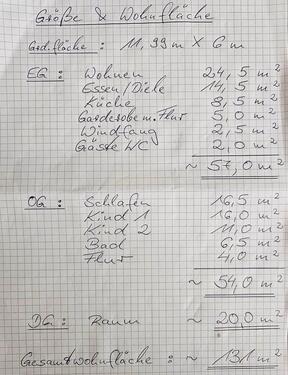 Größe & Wohnfläche
Grd.fläche : 11,99 m x 6 m
EG : Wohnen 24,5 m²
Essen/Diele 14,5 m²
Küche 8,5 m²
Garderobe m. Flur 5,0 m²
Windfang 2,5 m²
Gäste WC 2,0 m²
~ 57,0 m²
OG : Schlafen 16,5 m²
Kind 1 16,0 m²
Kind 2 11,0 m²
Bad 6,5 m²
Flur 4,0 m²
~ 54,0 m²
DG : Raum ~ 20,0 m²
Gesamtwohnfläche : ~ 131 m²